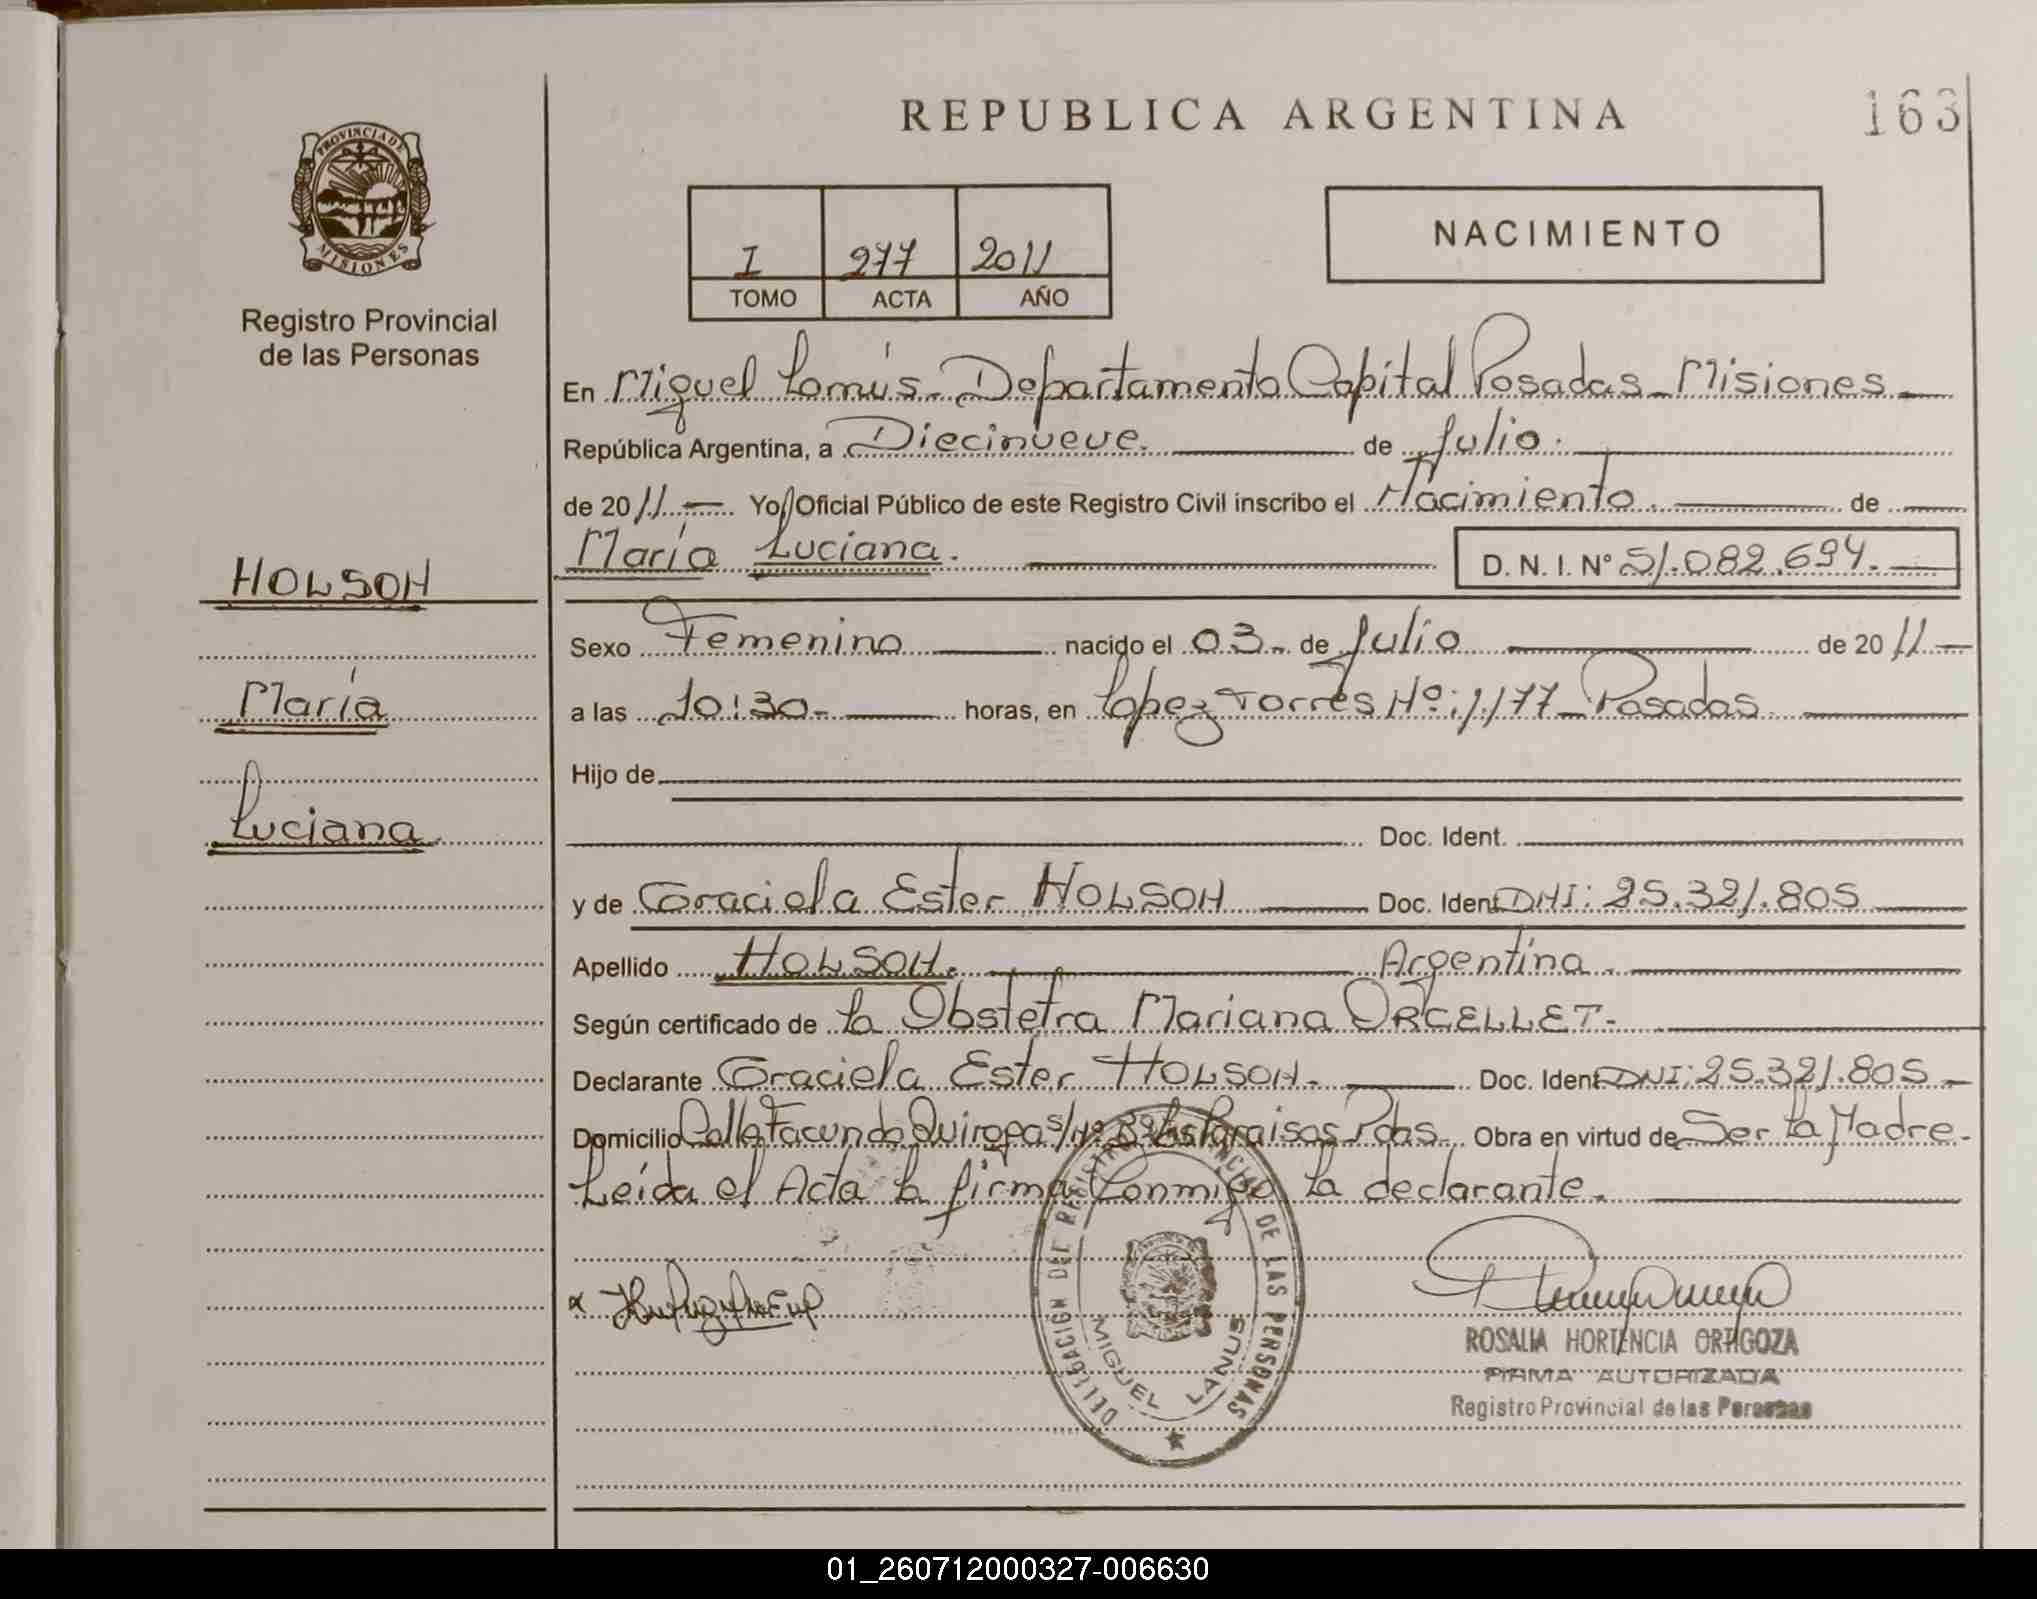 REPUBLICA ARGENTINA
163
PROVINCIA DE MISIONES
Registro Provincial
de las Personas
I 277 2011
TOMO ACTA AÑO
NACIMIENTO
En Miguel Lanús - Departamento Capital Posadas - Misiones
República Argentina, a Diecinueve. de Julio.
de 2011 Yo, Oficial Público de este Registro Civil inscribo el Nacimiento de
María Luciana. D. N. I. Nº 51.082.694.
HOLSOH
María
Luciana
Sexo Femenino nacido el 03 - de Julio de 2011
a las 10:30 - horas, en Lopez Torres Nº: 1.177 - Posadas
Hijo de
Doc. Ident.
y de Graciela Ester HOLSOH Doc. Ident DNI: 25.321.805
Apellido HOLSOH. Argentina.
Según certificado de la Obstetra Mariana ORCELLET.
Declarante Graciela Ester HOLSOH. Doc. Ident DNI: 25.321.805
Domicilio Calle Facundo Quiroga s/nº Bº Los Paraisos Pdas. Obra en virtud de Ser la Madre.
Leída el Acta la firma Conmigo la declarante.
DELEGACIÓN DEL REGISTRO PROVINCIAL DE LAS PERSONAS
MIGUEL LANUS
ROSALIA HORTENCIA ORTIGOZA
FIRMA AUTORIZADA
Registro Provincial de las Personas
01_260712000327-006630